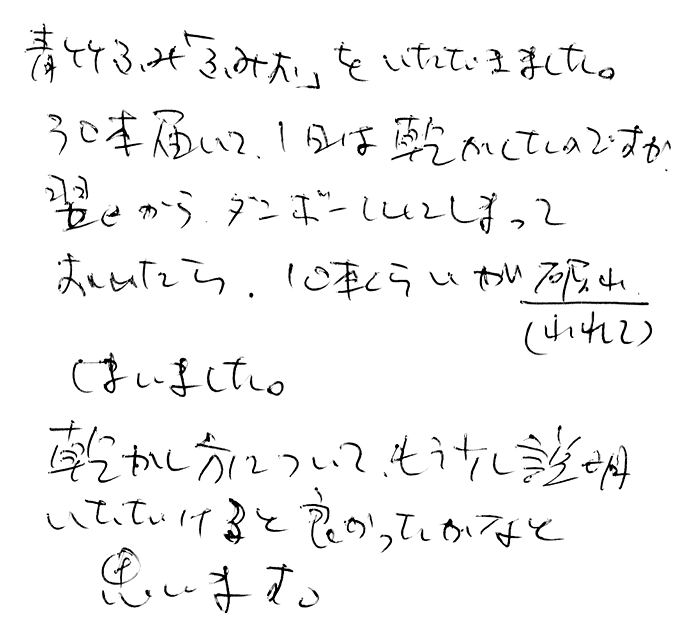 青竹ふみ「ふみ太」をいただきました。
30本届いて、1日は乾かしたのですが
翌日から、ダンボールにしまって
おいたら、10本くらいが破れ
(われて)
しまいました。
乾かし方について、もう少し説明
いただけると良かったかなと
思います。